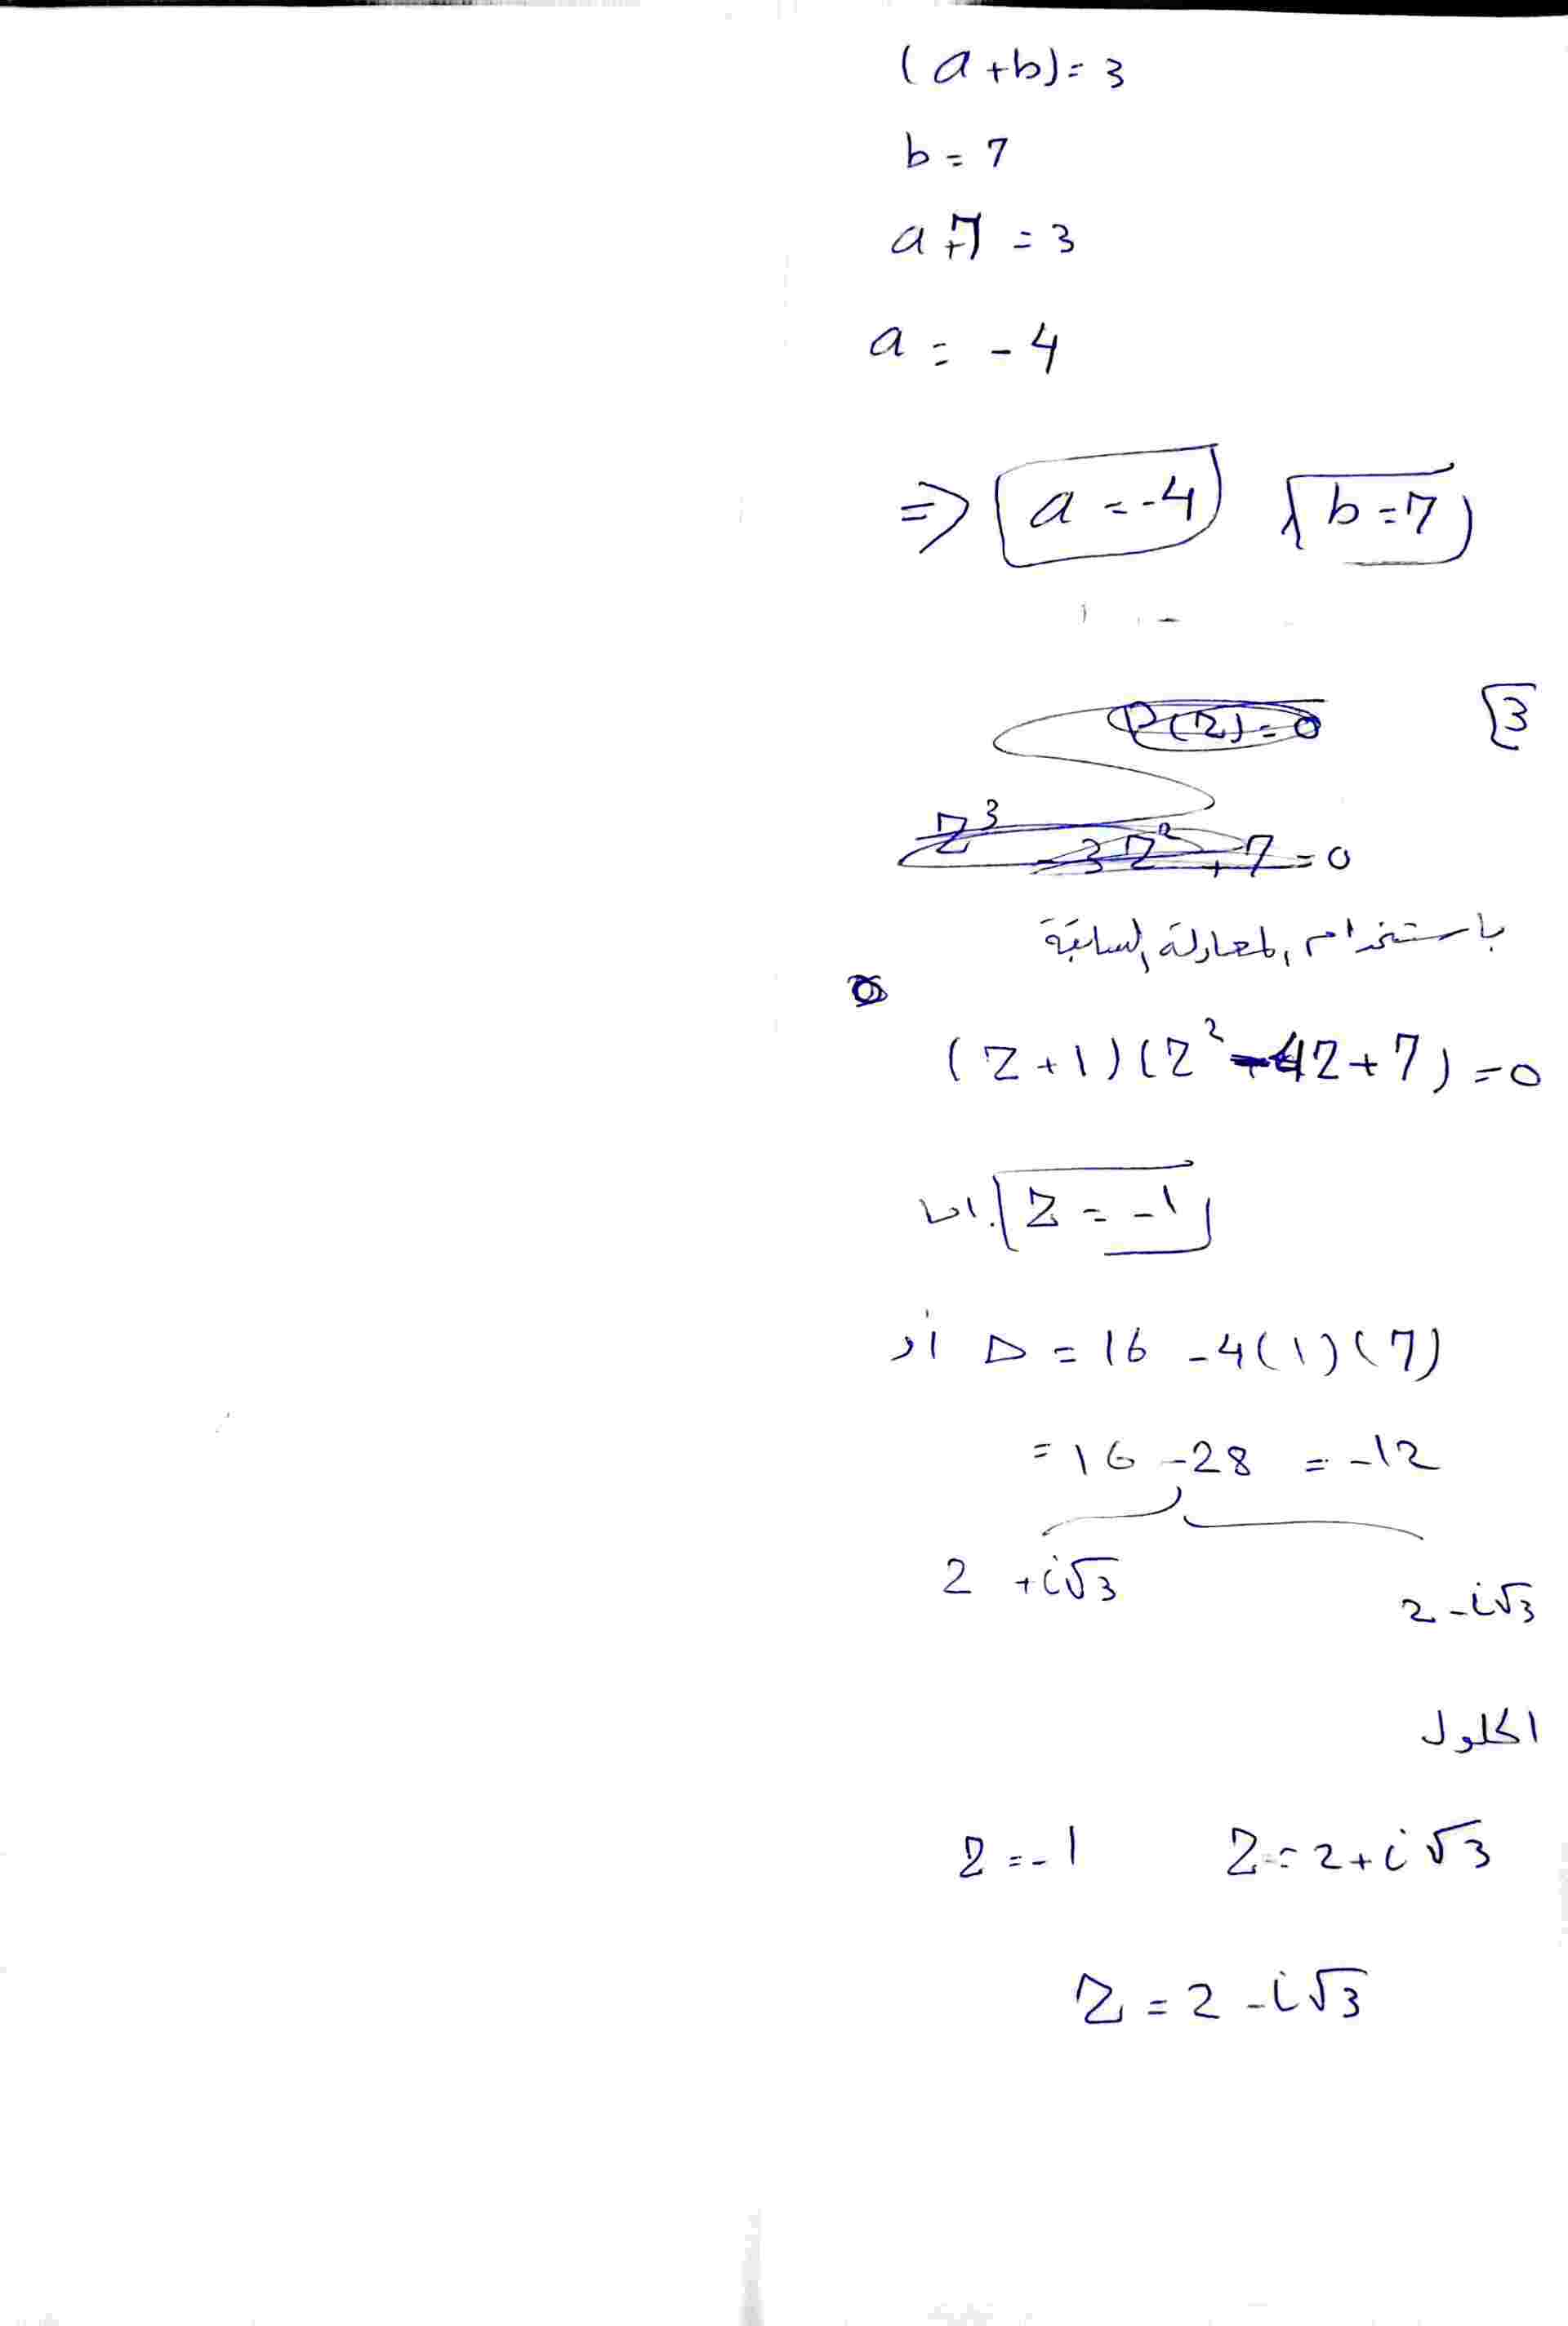 (a+b)=3
b=7
a+7=3
a=-4
⇒ a=-4 b=7
3 P(Z)=0
Z³ -3Z²+7=0
باستخدام المعادلة السابقة
(Z+1)(Z²-4Z+7)=0
اما Z=-1
أو Δ=16-4(1)(7)
=16-28=-12
2+i√3 2-i√3
الحلول
Z=-1 Z=2+i√3
Z=2-i√3